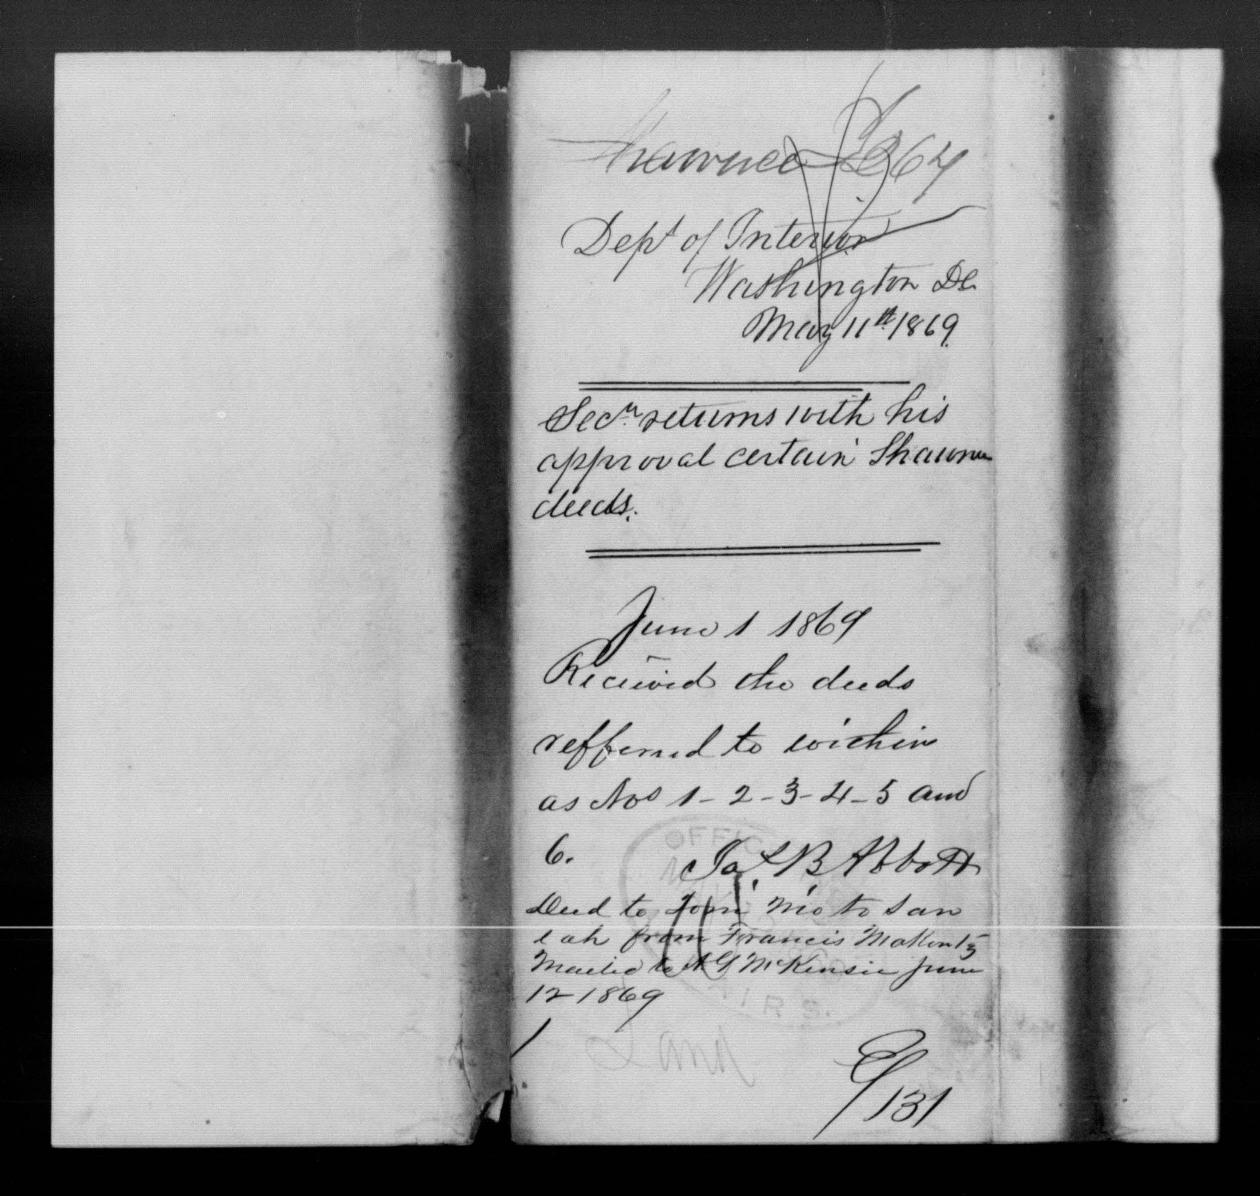 Shawnee I 364
Dept of Interior
Washington DC
May 11th 1869.
Secy returns with his
approval certain Shawnee
deeds.
June 1 1869
Received the deeds
refferred to within
as Nos 1-2-3-4-5 and
6. Jas B Abbott
OFFICE
Deed to
from Francis
Mailed to McKensie June
12 1869
AIRS.
Land
131